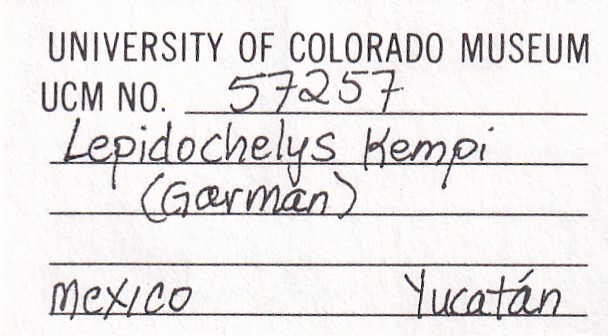 UNIVERSITY OF COLORADO MUSEUM
UCM NO. 57257
Lepidochelys Kempi
(Garman)
Mexico Yucatán